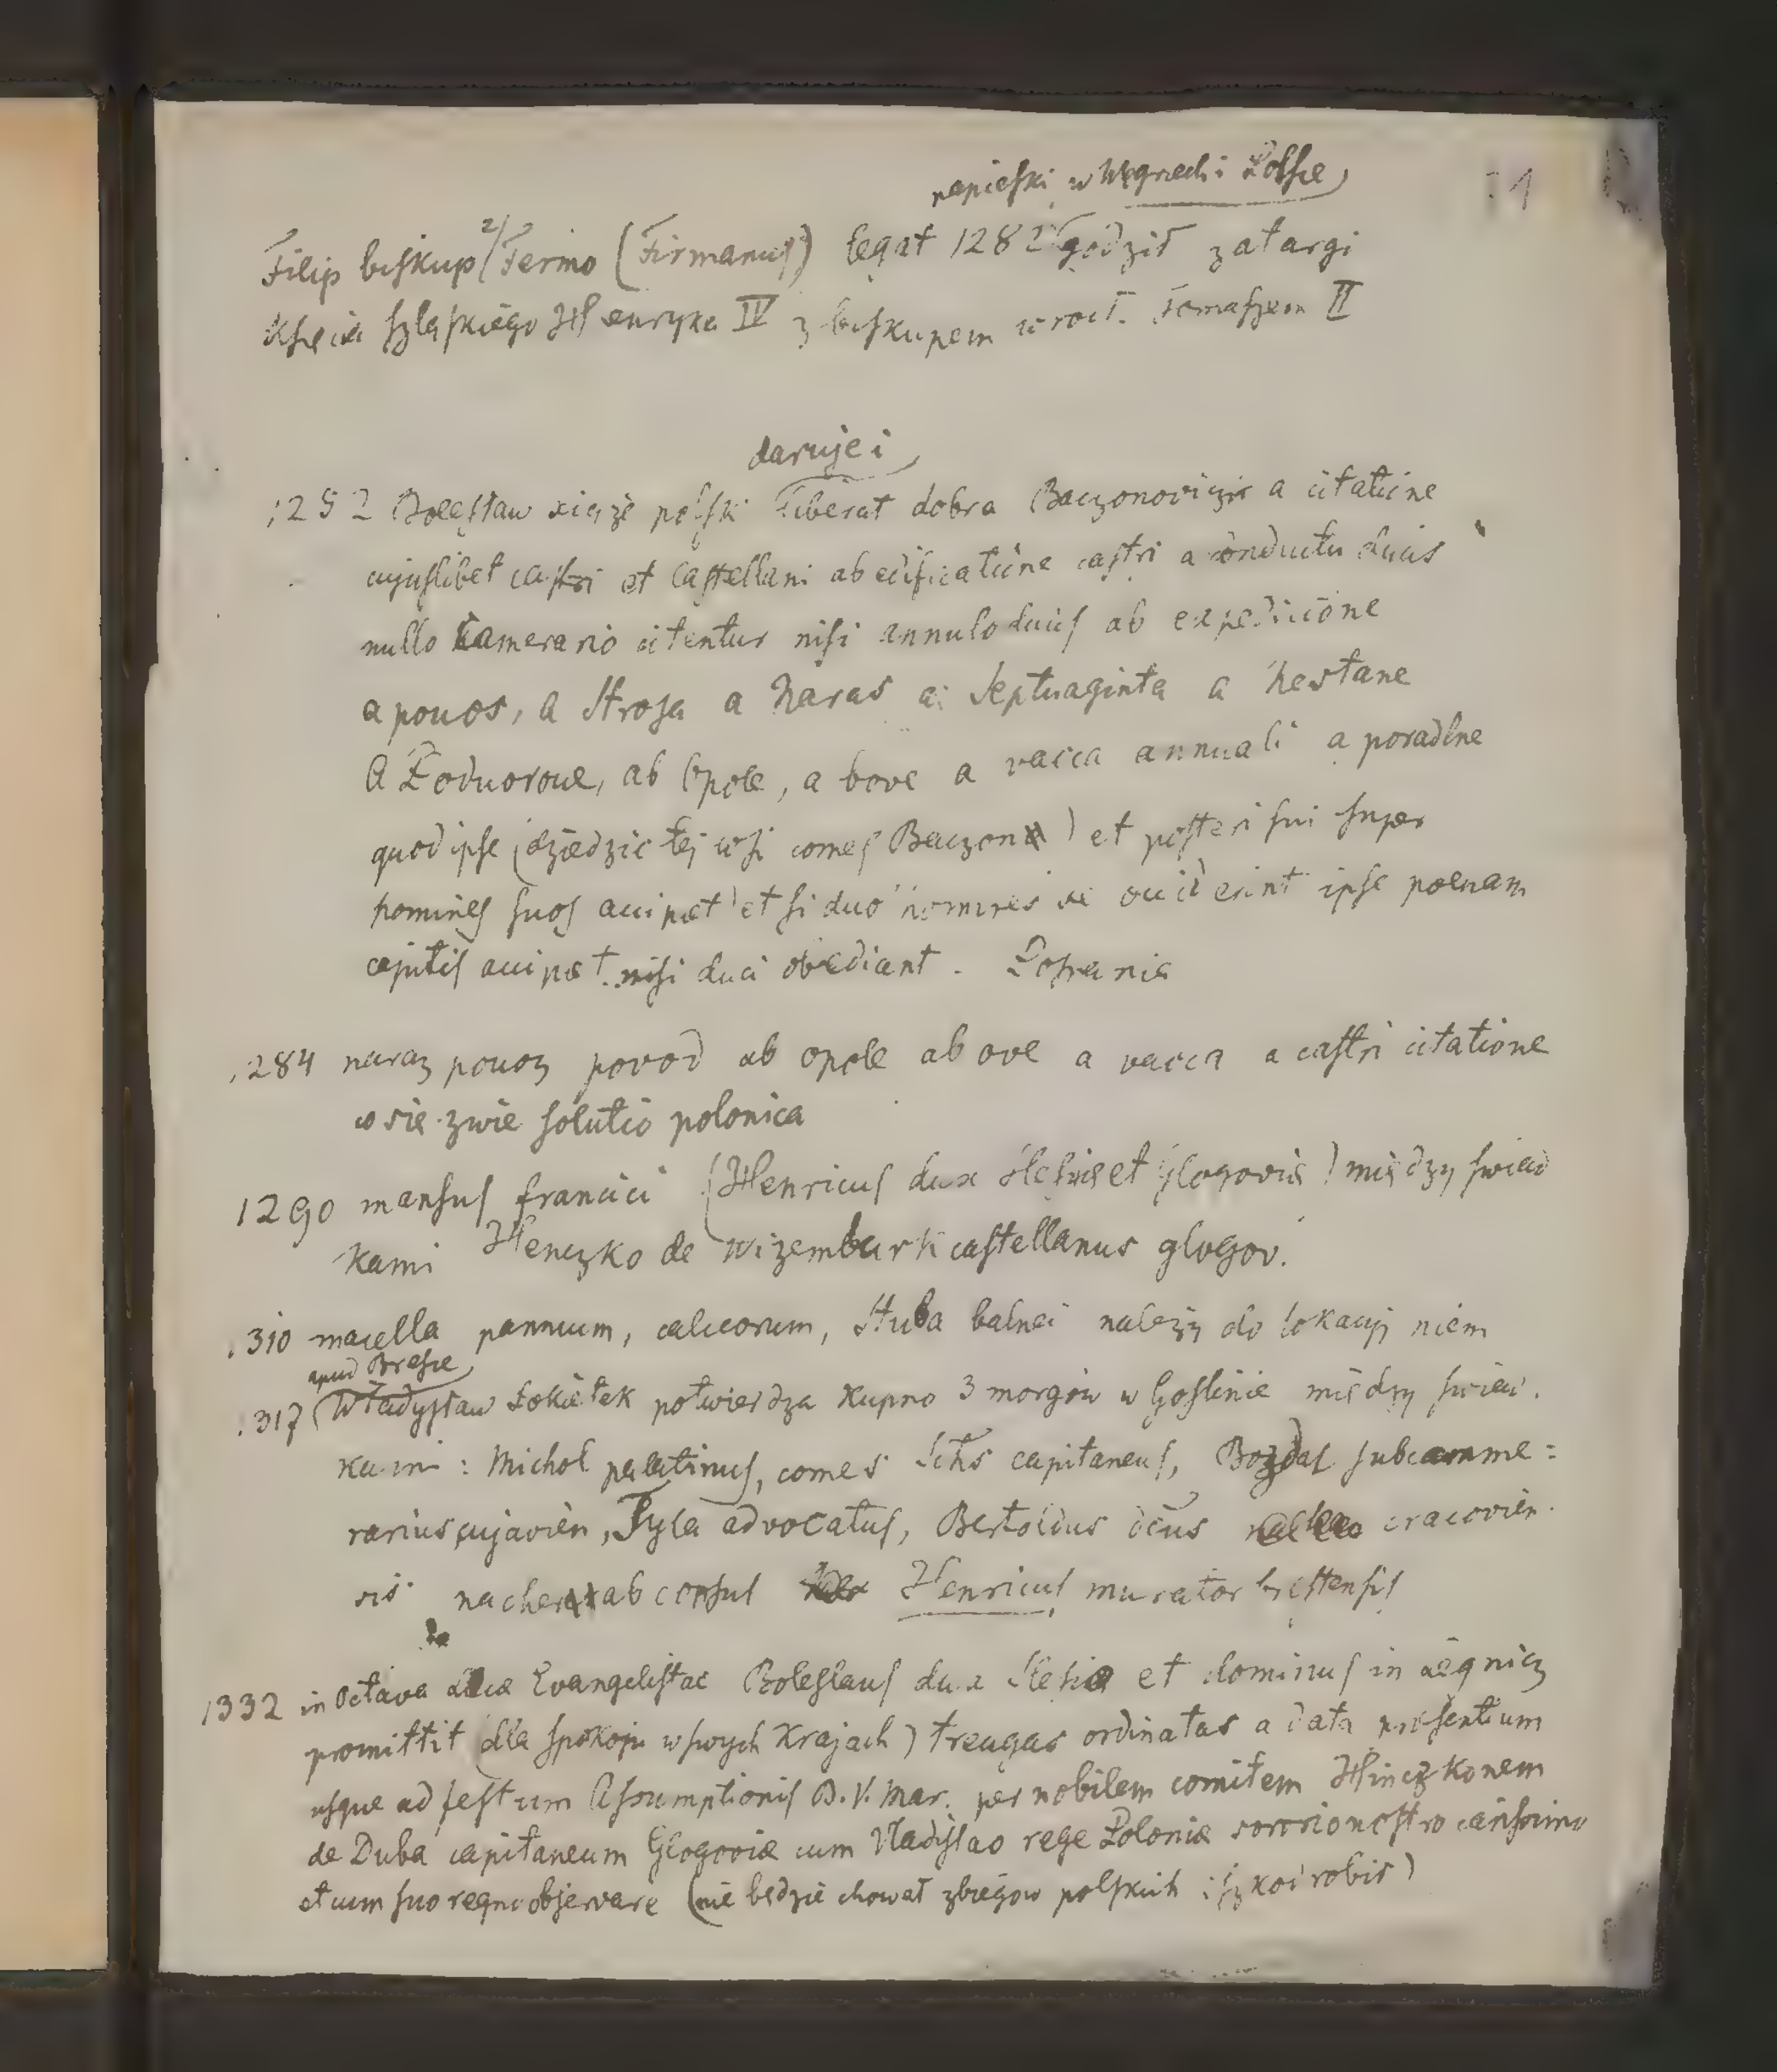 papieski w Węgrzech i Polsce
11
Filip biskup z Fermo (Firmanus) legat 1282 godził zatargi
Księcia szląskiego Henryka IV z biskupem wrocł. Tomaszem II
daruje i
1252 Bolesław xiąże polski liberat dobra Baczonovicze a citatione
cujuslibet castri et castellani ab edificatione castri a conductu ducis
nullo camerario citentur nisi annulo ducis ab expedicione
a povos, a Stroza a Naras a Septuaginta a Nestane
a Podvorove, ab opole, a bove a vacca annuali a poradlne
quod ipse (dziedzic tej wsi comes Baczon) et posteri sui super
homines suos accipiet et si duo homines se occiderint ipse poenam
capitis accipiet nisi duci obediant. Posnanie
1284 naraz povoz povod ab opole ab ove a vacca a castri citatione
co się zwie solutio polonica
1290 mansus francici (Henricus dux Slesie et Glogovie) między świad
kami Henczko de Wizemburk castellanus glogov.
1310 macella pannium, calceorum, stuba balnei należy do lokacyi niem
apud Breście
1317 (Władysław Łokietek potwierdza kupno 3 morgów w Goslinie między świad.
kami: Michoł palatinus, comes Johs capitaneus, Bozdal subcamme=
rarius cujavien, Tyla advocatus, Bertoldus dcus cracovien
sis nacher ab consul Henricus murator brestensis
1332 in octava Lucae Evangelistae Boleslaus dux Slesiae et dominus in Legnicz
promittit (dla spokoju w swych krajach) treugas ordinatas a data presentium
usque ad festum Assumptionis B. V. Mar. per nobilem comitem Hinczkonem
de Duba capitaneum Glogoviae cum Vladislao rege Poloniae sororio nostro carissimo
et cum suo regno observare (nie będzie chował zbiegow polskich i szkod robić)